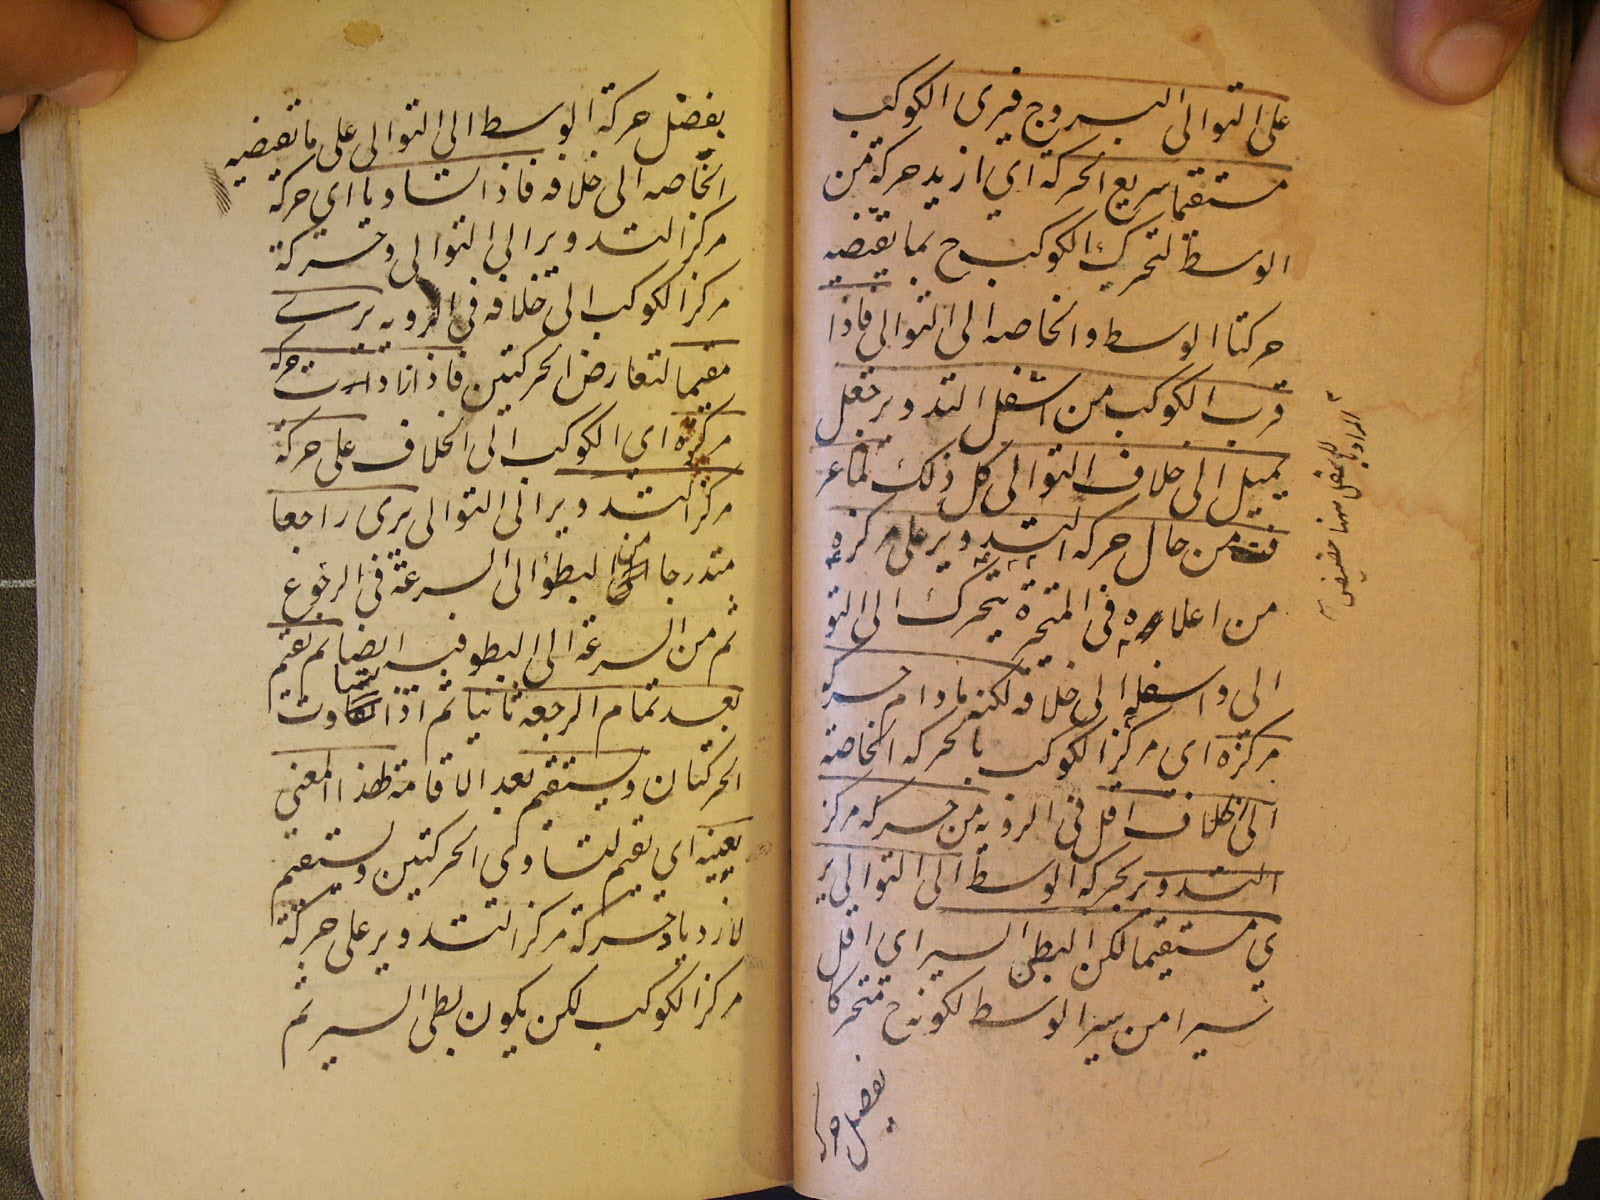 على التوالى البروج فيرى الكوكب
مستقيما سريع الحركة اي ازيد حركة من
الوسط لتحرك الكوكب ح بما تقتضيه
حركتا الوسط والخاصه الى التوالى فاذا
قرب الكوكب من اسفل التدوير جعل
يميل الى خلاف التوالى كل ذلك لما عر
فت من حال حركه التدوير على مركزه
من اعلاه فى المتحيرة يتحرك الى التو
الى واسفله الى خلافه لكنه مادام حركة
مركزه اى مركز الكوكب بالحركه الخاصة
الى الخلاف اقل فى الرويه من حركه مركز
التدوير بحركه الوسط الى التوالى ير
ي مستقيما لكن البطئ السير اي اقل
سيرا من سير الوسط لكونه ح متحركا
بفضل حر
المراد بالاسفل ههنا حضيض
بفضل حركة الوسط الى التوالى على ما تقتضيه
الخاصه الى خلافه فاذا تساويا اى حركة
مركز التدوير الى التوالى وحركة
مركز الكوكب الى خلافه فى الرويه يرے
مقيما لتعارض الحركتين فاذا زادت حركة
مركزه اى الكوكب الى الخلاف على حركة
مركز التدوير الى التوالى يرى راجعا
متدرجا من البطؤ الى السرعة فى الرجوع
ثم من السرعة الى البطو فيه ايضا ثم تقيم
بعد تمام الرجعه ثانيا ثم اذا تساوت
الحركتان ويستقيم بعد الاقامة لهذا المعنى
بعينه اي تقيم لتساوى الحركتين ويستقيم
لازدياد حركة مركز التدوير على حركة
مركز الكوكب لكن يكون بطئ السير ثم